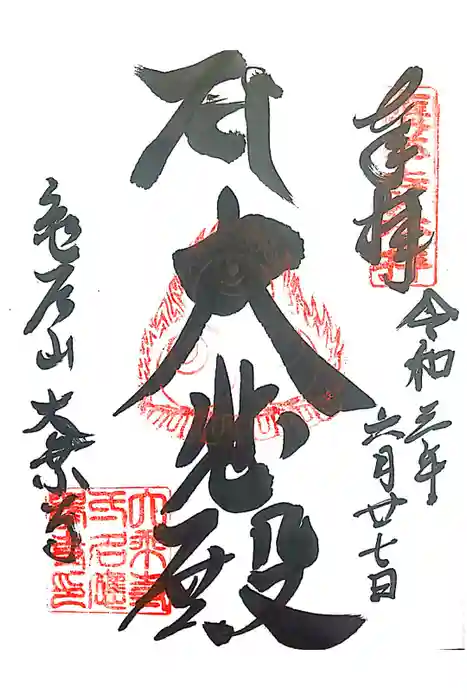 奉拝
令和三年
六月廿七日
大悲殿
亀居山 大乗寺